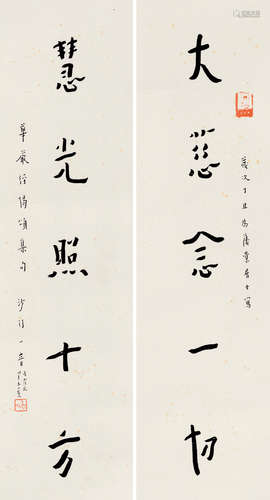 大慈念一切
歲次丁丑
慧光照十方
華嚴經偈頌集句 沙門一音